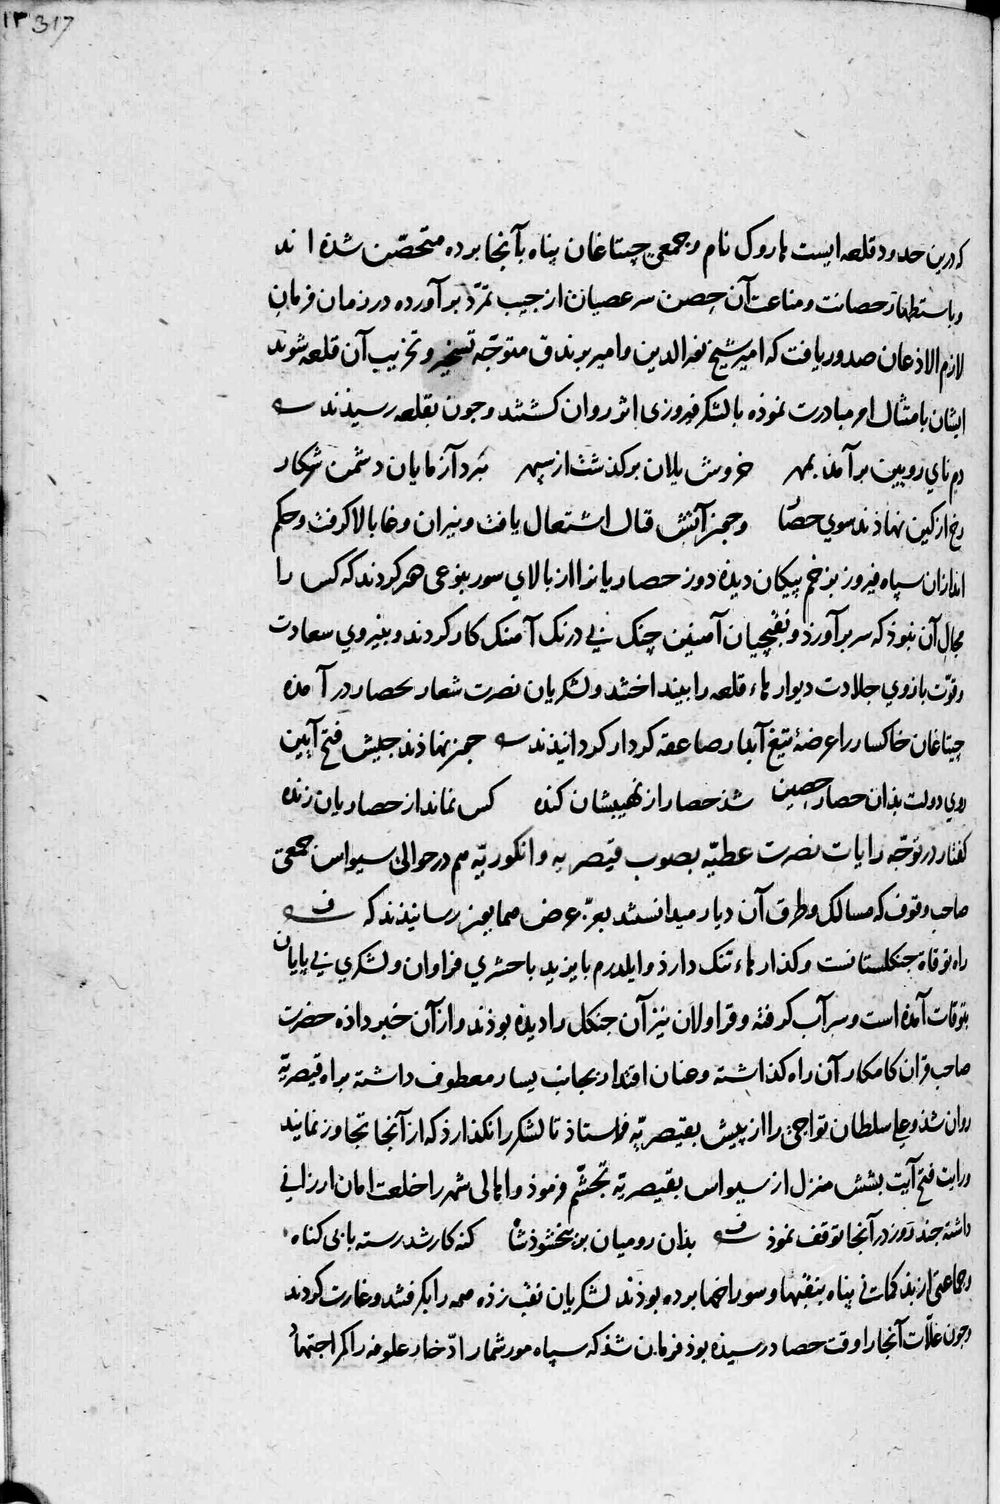 ١٣ 317
که درین حدود قلعه ایست هاروک نام و جمعی چیتاغان پناه بآنجا بوده متحصّن شده اند
و باستظهار حصانت و مناعت آن حصن سر عصیان از جیب تمرّد برآورده در زمان فرمان
لازم الاذعان صدور یافت که امیر شیخ نور الدین و امیر بوندق متوجّه تسخیر و تخریب آن قلعه شوند
ایشان بامتثال امر مبادرت نموذه با لشکر فیروزی اثر روان کشتند و جون بقلعه رسیذند
دم نای رویین برآمذ بمهر خروش یلان برکذشت از سپهر نبرد آزمایان دشمن شکار
رخ از کین نهاذند سوی حصار و جمر آتش قتال اشتعال یافت و نیران وغا بالا کرفت و حکم
اندازان سپاه فیروز بزخم پیکان دیذه دوز حصاریانرا از بالای سور بنوعی کردند که کس را
مجال آن نبوذ که سر برآورد و نقبچیان آهنین چنک بی درنک آهنک کار کردند و بنیروی سعادت
و قوّت بازوی جلادت دیوارهاء قلعه را بینداختند و لشکریان نصرت شعار بحصار درآمده
چیتاغان خاکسار را عرضهٔ تیغ آبدار صاعقه کردار کردانیذند جو بنهاذند جیش فتح آیین
روی دولت بذان حصار حصین شذ حصار از نهیبشان کنده کس نماند از حصاریان زنده
کفتار در توجّه رایات نصرت عطیّه بصوب قیصریه و انکوریّه هم در حوالی سیواس جمعی
صاحب وقوف که مسالک و طرق آن دیار میدانستند بعزّ عرض همایون رسانیذند که
راه توقات جنکلستانست و کذارهاء تنک دارذ و ایلدرم بایزید با حشری فراوان و لشکری بی پایان
بتوقات آمذه است و سر آب کرفته و قراولان نیز آن جنکل را دیذه بوذند و از آن خبر داذه حضرت
صاحب قران کامکار آن راه کذاشته و عنان اقتدار بجانب یسار معطوف داشته براه قیصریّه
روان شذ و علی سلطان تواجی را از پیش بقیصریّه فرستاذ تا لشکر را نکذارذ که از آنجا تجاوز نمایند
و رایت فتح آیت بشش منزل از سیواس بقیصریّه تجشّم فرموذ و اهالی شهر را خلعت امان ارزانی
داشته جند روز در آنجا توقف نموذ بذان رومیان بر ببخشوذ شاه کنه کار شد رسته با بی کناه
و جماعتی از بذ کمانی پناه بنقبها و سوراخها برده بوذند لشکریان نقب زده همه را بکرفتند و غارت کردند
و جون غلّات آنجا را وقت حصاد رسیذه بوذ فرمان شذ که سپاه مور شمار ادّخار علوفه را کمر اجتهاد